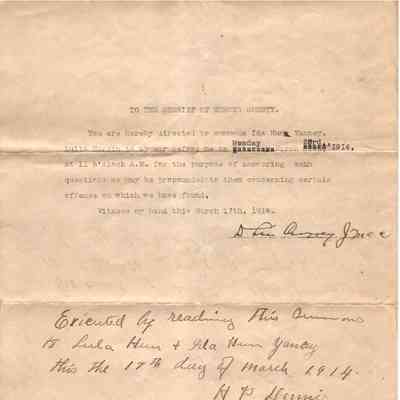 TO THE SHERIFF OF COUNTY.
You are hereby directed to summons Ida Hunn Yanney,
to appear before me in Monday March 23rd, 1914,
at 11 o'clock A.M. for the purpose of answering such
questions as may be propounded to them concerning certain
offense on which we have found.
Witness my hand this March 17th, 1914.
Executed by reading this Summons
to Lula Hun + Ida Hun Yancy
this the 17th day of March 1914.
H P Dennis